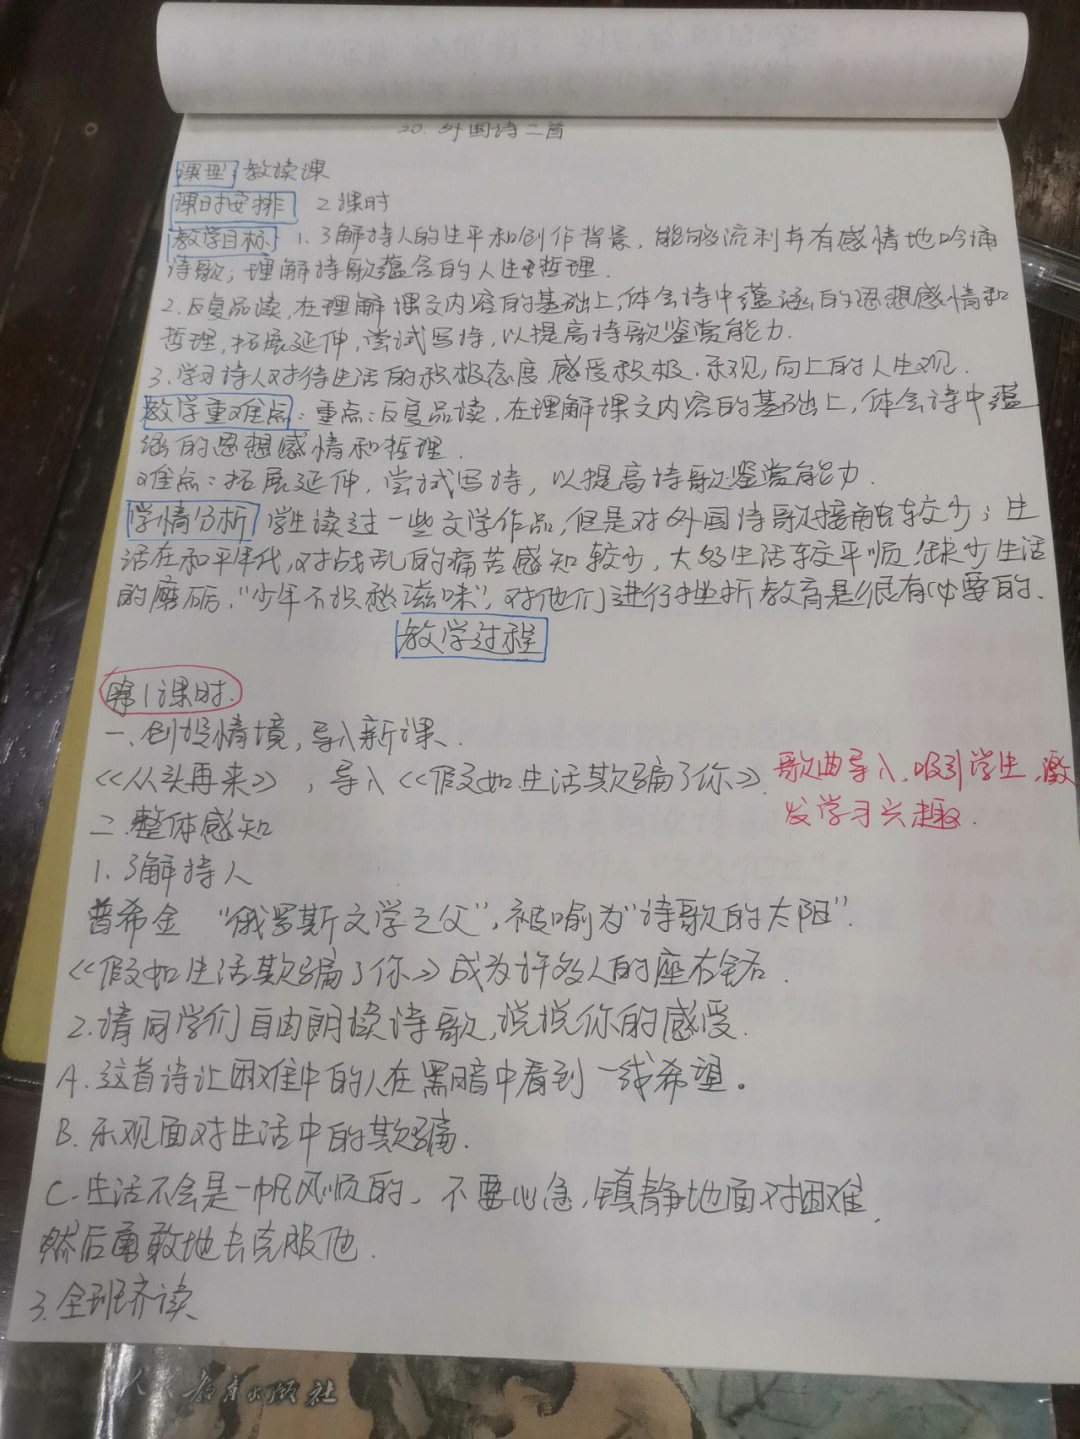 20. 外国诗二首
课型 教读课
课时安排 2课时
教学目标 1.了解诗人的生平和创作背景，能够流利并有感情地吟诵
诗歌，理解诗歌蕴含的人生哲理.
2.反复品读,在理解课文内容的基础上,体会诗中蕴涵的思想感情和
哲理,拓展延伸,尝试写诗,以提高诗歌鉴赏能力.
3.学习诗人对待生活的积极态度,感受积极.乐观,向上的人生观.
教学重难点:重点:反复品读,在理解课文内容的基础上,体会诗中蕴
涵的思想感情和哲理.
难点:拓展延伸,尝试写诗,以提高诗歌鉴赏能力.
学情分析 学生读过一些文学作品,但是对外国诗歌接触较少；生
活在和平年代,对战乱的痛苦感知较少,大多生活较平顺,缺少生活
的磨砺,"少年不识愁滋味",对他们进行挫折教育是很有必要的.
教学过程
第1课时.
一.创设情境,导入新课.
《从头再来》,导入《假如生活欺骗了你》. 歌曲导入,吸引学生,激
发学习兴趣.
二.整体感知
1.了解诗人
普希金 "俄罗斯文学之父",被喻为"诗歌的太阳".
《假如生活欺骗了你》成为许多人的座右铭.
2.请同学们自由朗读诗歌,说说你的感受.
A.这首诗让困难中的人在黑暗中看到一线希望。
B.乐观面对生活中的欺骗.
C.生活不会是一帆风顺的,不要心急,镇静地面对困难,
然后勇敢地去克服他.
3.全班齐读
人民教育出版社